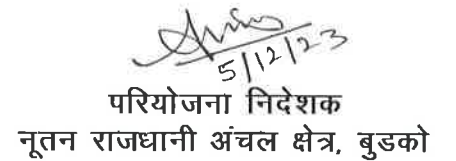 5/12/23
परियोजना निदेशक
नूतन राजधानी अंचल क्षेत्र, बुडको